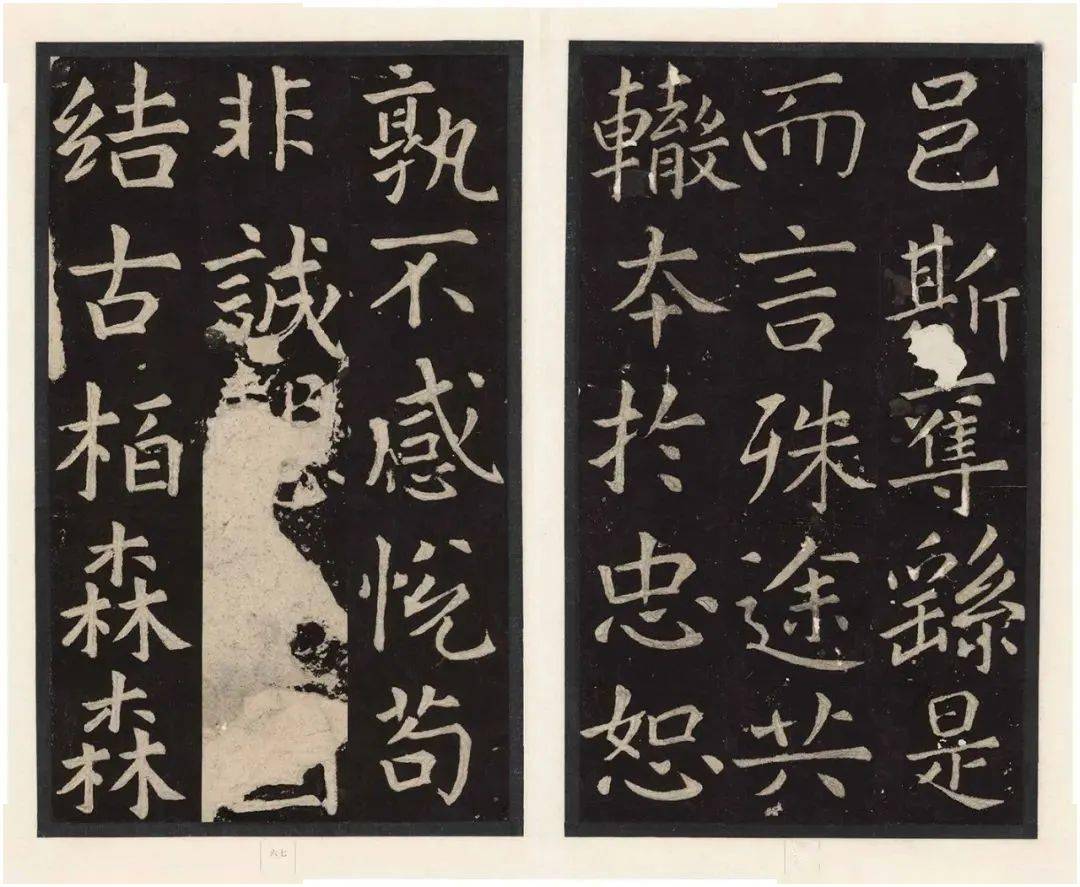 邑斯奪繇是
而言殊途共
轍本於忠恕
孰不感悅苟
非誠
結古柏森森
六七